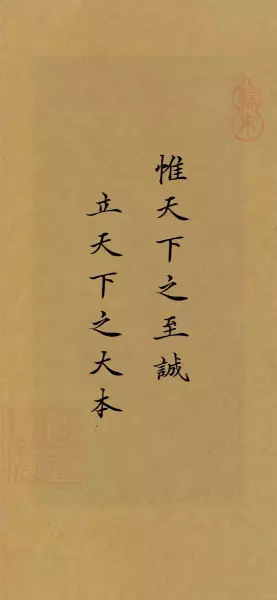 惟天下之至誠
立天下之大本